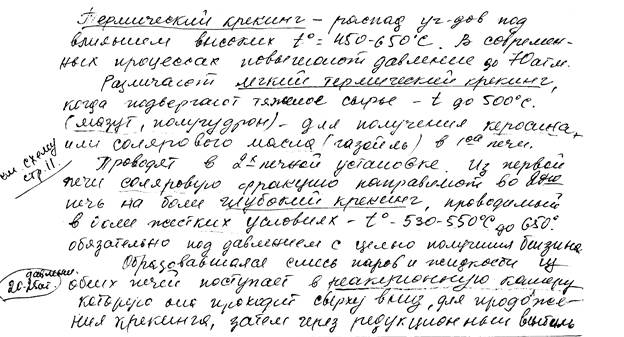 Термический крекинг – распад уг-дов под
влиянием высоких t° = 450-650°С. В современ-
ных процессах повышают давление до 70 атм.
Различают легкий термический крекинг,
когда подвергают тяжелое сырье – t до 500°С.
(мазут, полугудрон) – для получения керосина,
или солярового масла (газойль) в 1ой печи.
Проводят в 2х печной установке. Из первой
см схему
стр. 11.
печи соляровую фракцию направляют во 2ую
печь на более глубокий крекинг, проводимый
в более жестких условиях – t° - 530-550°С до 650°
обязательно под давлением с целью получения бензина.
Образовавшаяся смесь паров и жидкости из
давлени.
20-25ат.
обеих печей поступает в реакционную камеру
которую она проходит сверху вниз, для продолже-
ния крекинга, затем через редукционный вентиль